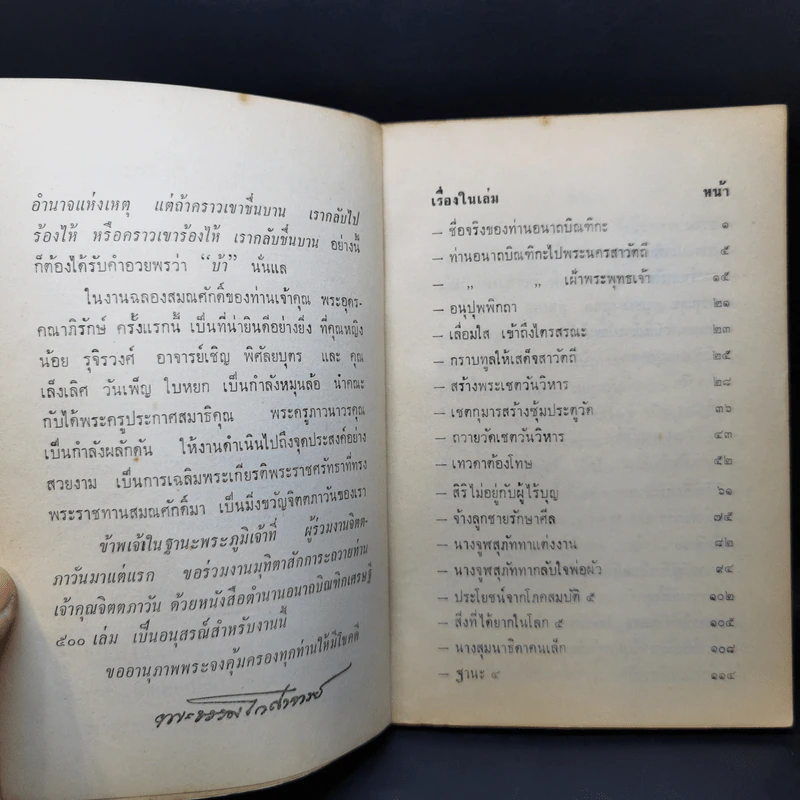 อำนาจแห่งเหตุ แต่ถ้าคราวเขาชื่นบาน เรากลับไป
ร้องไห้ หรือคราวเขาร้องไห้ เรากลับชื่นบาน อย่างนี้
ก็ต้องได้รับคำอวยพรว่า “บ้า” นั่นแล
ในงานฉลองสมณศักดิ์ของท่านเจ้าคุณ พระอุดร-
คณาภิรักษ์ ครั้งแรกนี้ เป็นที่น่ายินดีอย่างยิ่ง ที่คุณหญิง
น้อย รุจิรวงศ์ อาจารย์เชิญ พิศัลยบุตร และ คุณ
เล็งเลิศ วันเพ็ญ ใบหยก เป็นกำลังหมุนล้อ นำคณะ
กับได้พระครูประกาศสมาธิคุณ พระครูภาวนาวรคุณ
เป็นกำลังผลักดัน ให้งานดำเนินไปถึงจุดประสงค์อย่าง
สวยงาม เป็นการเฉลิมพระเกียรติพระราชศรัทธาที่ทรง
พระราชทานสมณศักดิ์มา เป็นมิ่งขวัญจิตตภาวันของเรา
ข้าพเจ้าในฐานะพระภูมิเจ้าที่ ผู้ร่วมงานจิตต-
ภาวันมาแต่แรก ขอร่วมงานมุทิตาสักการะถวายท่าน
เจ้าคุณจิตตภาวัน ด้วยหนังสือตำนานอนาถบิณฑิกเศรษฐี
๕๐๐ เล่ม เป็นอนุสรณ์สำหรับงานนี้
ขออานุภาพพระจงคุ้มครองทุกท่านให้มีโชคดี
เรื่องในเล่ม หน้า
– ชื่อจริงของท่านอนาถบิณฑิกะ ๑
– ท่านอนาถบิณฑิกะไปพระนครสาวัตถี ๕
– ,, ,, เฝ้าพระพุทธเจ้า ๑๕
– อนุปุพพิกถา ๒๑
– เลื่อมใส เข้าถึงไตรสรณะ ๒๓
– กราบทูลให้เสด็จสาวัตถี ๒๕
– สร้างพระเชตวันวิหาร ๒๘
– เชตกุมารสร้างซุ้มประตูวัด ๓๖
– ถวายวัดเชตวันวิหาร ๔๓
– เทวดาต้องโทษ ๕๒
– สิริไม่อยู่กับผู้ไร้บุญ ๖๑
– จ้างลูกชายรักษาศีล ๗๕
– นางจูฬสุภัททาแต่งงาน ๘๒
– นางจูฬสุภัททากลับใจพ่อผัว ๙๔
– ประโยชน์จากโภคสมบัติ ๕ ๑๐๒
– สิ่งที่ได้ยากในโลก ๕ ๑๐๕
– นางสุมนาธิดาคนเล็ก ๑๐๘
– ฐานะ ๔ ๑๑๔